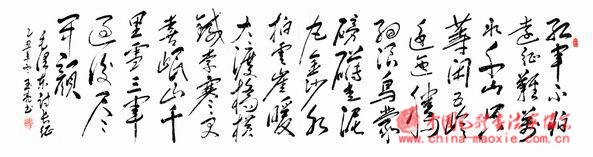 红军不怕
远征難萬
水千山只
等闲五岭
逶迤腾
细浪乌蒙
磅礴走泥
丸金沙水
拍雲崖暖
大渡桥横
铁索寒更
喜岷山千
里雪三军
过後尽
开颜
毛泽东诗长征
www.china-maoxie.com